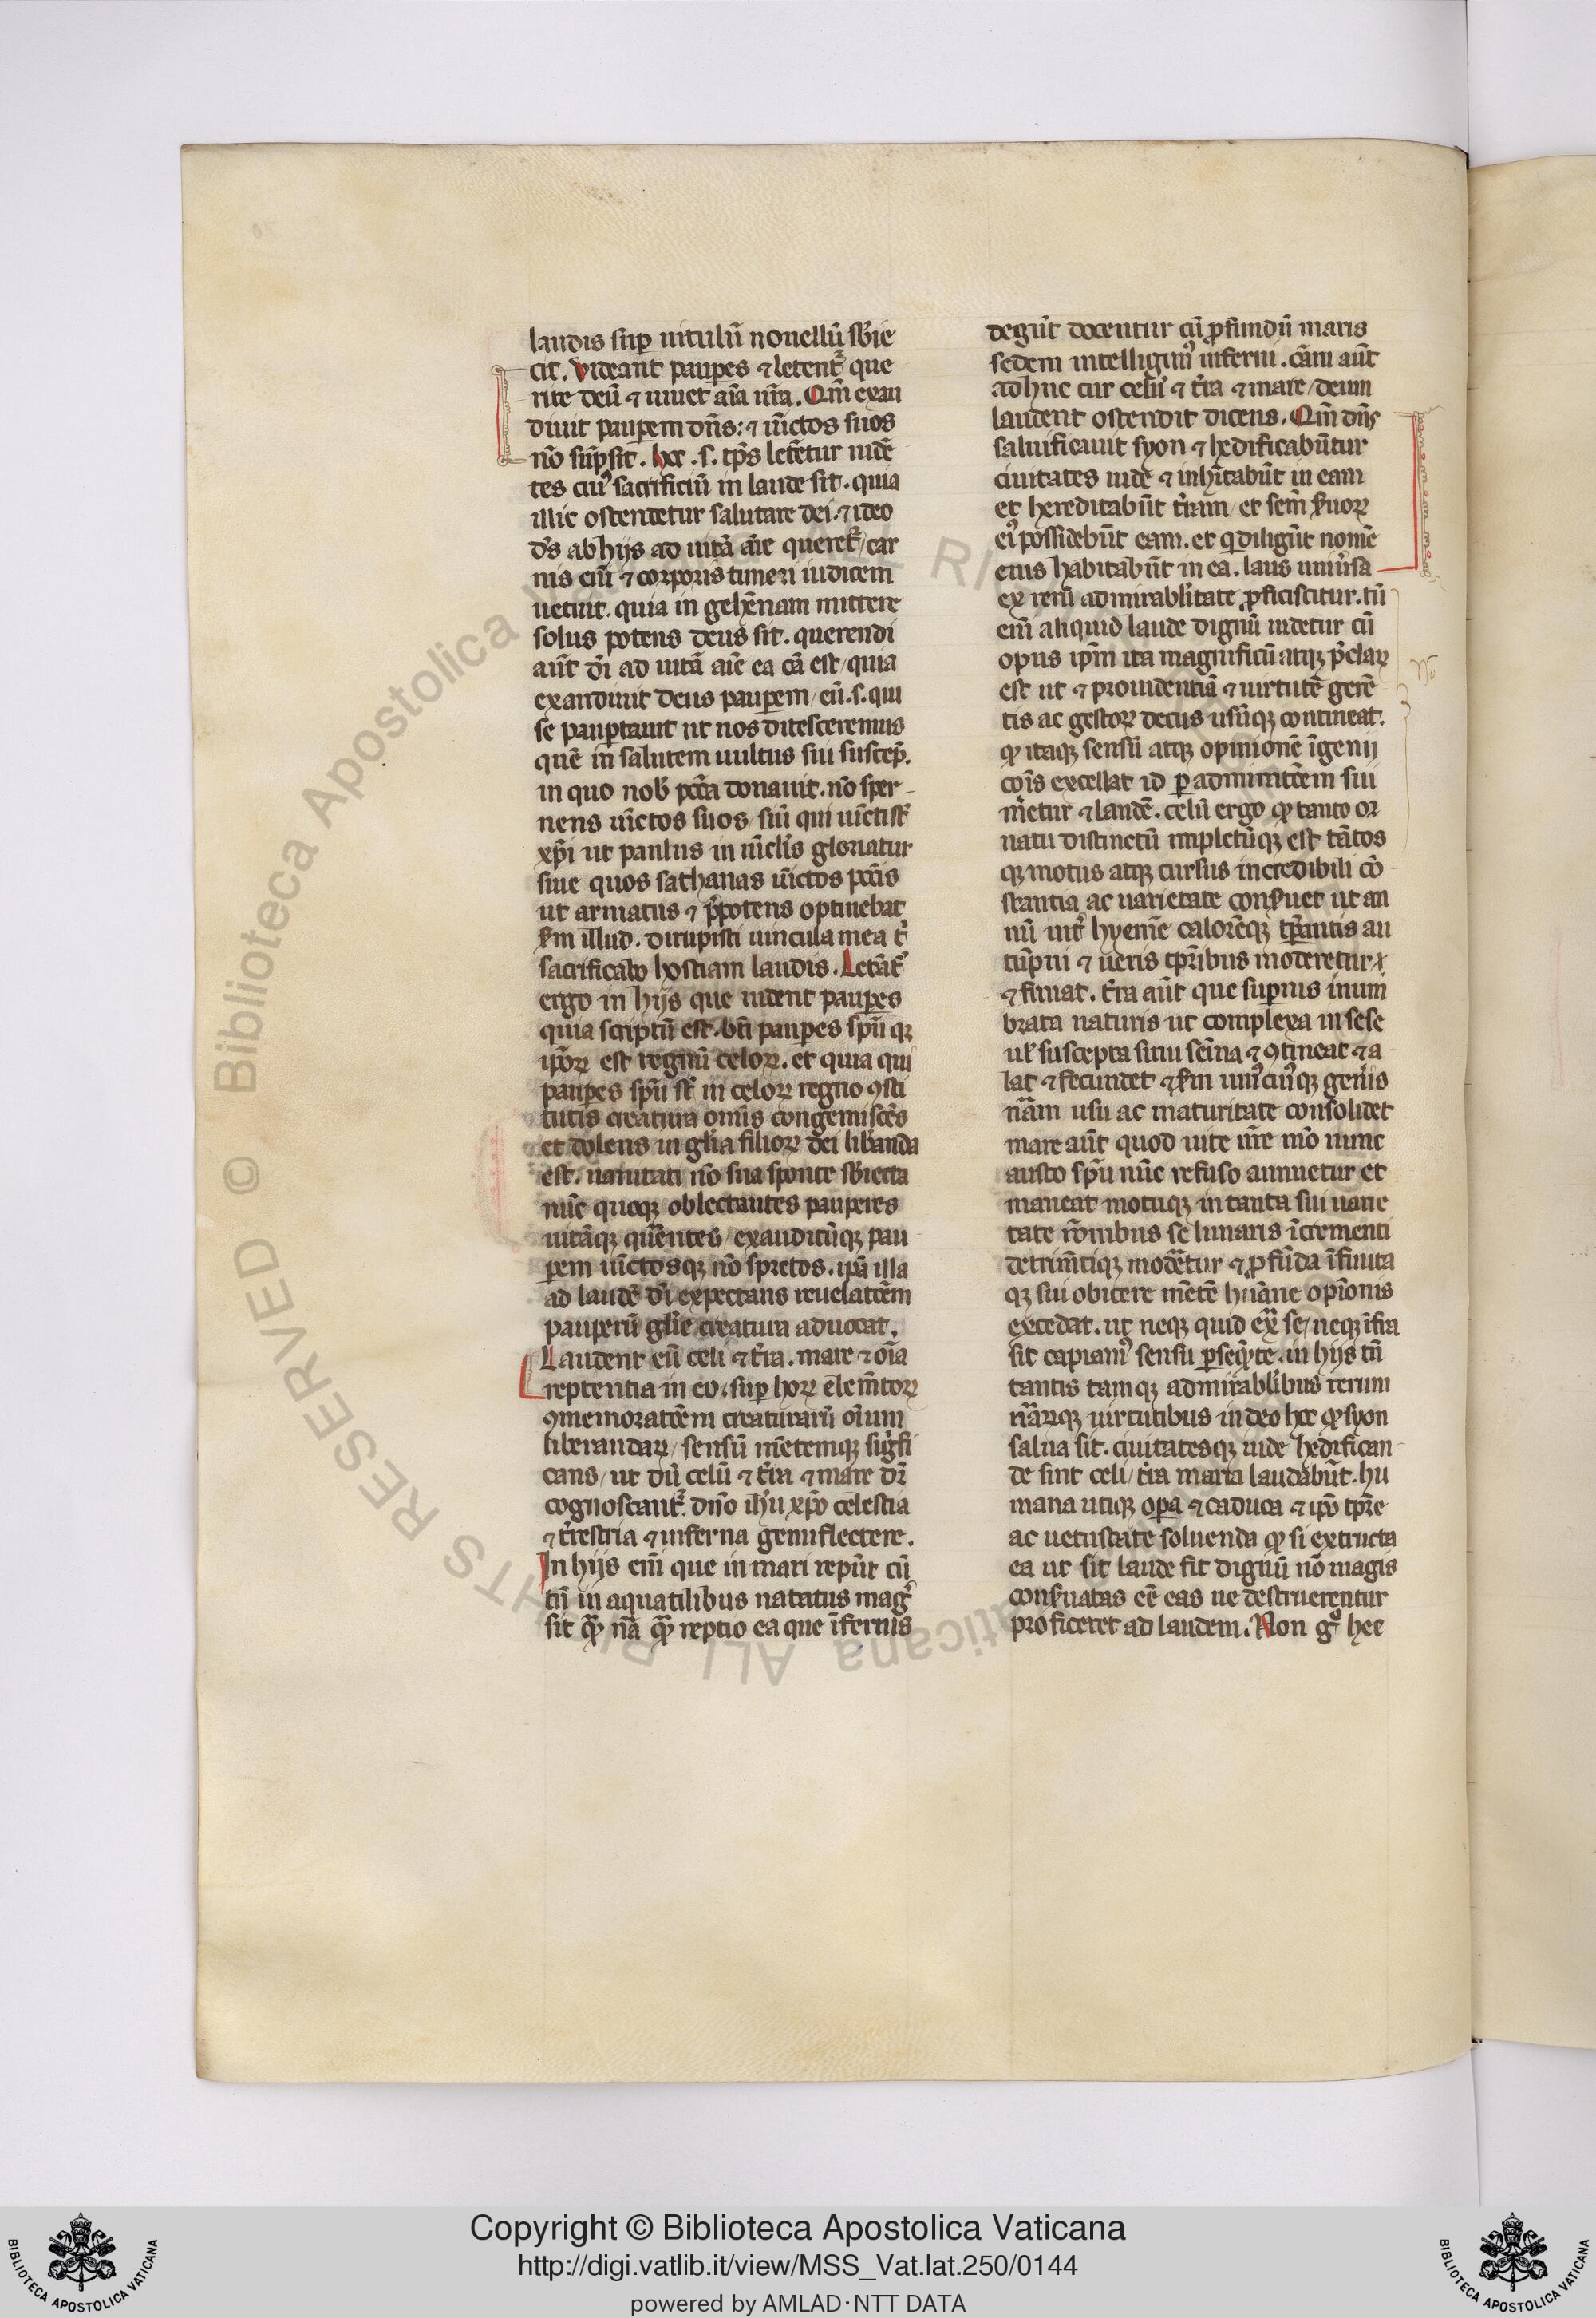 laudis sup uitulū nouellū sb̓ie
cit. Videant paupes ⁊ letent̃ que
rite deū ⁊ uiuet aīa ur̄a. Qm̄ exau
diuit paupem dn̄s: ⁊ uīctos suos
nō sp̄sit. hec .s. tp̄s letētur uidē
tes cui⁹ sacrificiū in laude sit. quia
illic ostendetur salutare dei. ⁊ ideo
ds̄ ab hijs ad uitā aīe queret̃ / car
nis eīn ⁊ corporis timeri iudicem
uetuit. quia in gehēnam mittere
solus potens deus sit. querendi
aūt dī ad uitā aīe ea cā est / quia
exaudiuit deus paupem / eū .s. qui
se paupertauit ut nos ditesceremus
quē in salutem uultus sui suscep̄.
in quo nob̄ pctā donauit. nō sper-
nens uīctos suos / siū qui uīcti st̄
xp̄i ut paulus in uīclis gloriatur
siue quos sathanas uīctos pctīs
ut armatus ⁊ p̄potens optinebat
km illud. dirupisti uincula mea t̄
sacrificabo hostiam laudis. Letāt̃
ergo in hijs que uident paupes
quia scriptū est. bt̄i paupes spū qꝫ
ip̄oꝝ est regnū celoꝝ. et quia qui
paupes spū st̄ in celoꝝ regno ꝯsti
tutis creatura omīs congemiscēs
et dolens in gl̄ia filioꝝ dei lib̓anda
est. uanitati nō sua sponte sb̓iecta
nūc quoqꝫ oblectantes pauperes
uitāqꝫ querentes / exauditūqꝫ pau
pem uīctosqꝫ nō spretos. ip̄a illa
ad laudē dī expectans reuelatōem
pauperū gl̄ie creatura aduocat.
Laudent eū celi ⁊ t̄ra. mare ⁊ oīa
reptentia in eo. sup hoꝝ elem̄toꝝ
ꝯmemoratōem creaturarū oīum
liberandaꝝ / sensū mētemqꝫ sig̓fi
cans / ut dū celū ⁊ t̄ra ⁊ mare dr̄
cognoscant̃ dn̄o ih̄u xp̄o celestia
⁊ t̄restria ⁊ inferna genuflectere.
In hijs eīn que in mari repūt cū
tn̄ in aquatilibus natatus mag̓
sit qꝫ̄ nā qꝫ̄ reptio ea que īfernis
degūt docentur cū ꝓfundū maris
sedem intelligim⁹ inferni. cām aūt
adhuc cur celū ⁊ t̄ra ⁊ mare / deum
laudent ostendit dicens. Qm̄ dn̄s
saluificauit syon ⁊ hedificabūtur
ciuitates iude ⁊ inhītabūt in eam
et hereditabūt t̄ram / et sem̄ seruoꝝ
ei⁹ possidebūt eam. et q̓ diligūt nomē
eius habitabūt in ea. laus uniūsa
ex rerū admirablitate ꝓficiscitur. tū
eīn aliquid laude dignū uidetur cū
opus ip̄m ita magnificū atqꝫ p̄claꝝ
est ut ⁊ prouidentiā ⁊ uirtutē gerē
tis ac gestoꝝ decus usūqꝫ contineat.
qꝫ itaqꝫ sensū atqꝫ opinionē īgenij
coīs excellat id p admiratōem sui
m̄etur ⁊ laudē. celū ergo qꝫ tanto or
natu distinctū impletūqꝫ est tātos
qꝫ motus atqꝫ cursus incredibili cō
stantia ac uarietate conseruet ut an
nū int̄ hyemē calorēqꝫ tp̄antis au
tūpni ⁊ ueris tp̄ribus moderetur
⁊ finiat. t̄ra aūt que supnis inum
brata naturis ut complexa in sese
ul̄ suscepta sinu semīa ⁊ ꝯtineat ⁊ a
lat ⁊ fecundet ⁊ km uni⁹cui⁹qꝫ gen̄is
nām usu ac maturitate consolidet
mare aūt quod uite nr̄e mō nunc
austo spū nūc refuso annuetur et
maneat motuqꝫ in tanta sui uarie
tate rōnibus se lunaris īcrementi
detrim̄tiqꝫ modētur ⁊ ꝓfūda īfinita
qꝫ sui obicere mētē huāne opīonis
excedat. ut neqꝫ quid ext̄ se / neqꝫ īfra
sit capiam⁹ sensu pseq̄nte. in hijs tn̄
tantis tamqꝫ admirabilibus rerum
nāꝝqꝫ uirtutibus in deo hec qꝫ syon
salua sit. ciuitatesqꝫ iude hedifican-
de sint celi / t̄ra maria laudabūt. hu
mana utiqꝫ opa ⁊ caduca ⁊ ip̄o tp̄re
ac uetustate soluenda qꝫ si extructa
ea ut sit laude fit dignū nō magis
conseruatas eē eas ne destruerentur
proficeret ad laudem. Non g̊ hec
Copyright © Biblioteca Apostolica Vaticana
http://digi.vatlib.it/view/MSS_Vat.lat.250/0144
powered by AMLAD·NTT DATA